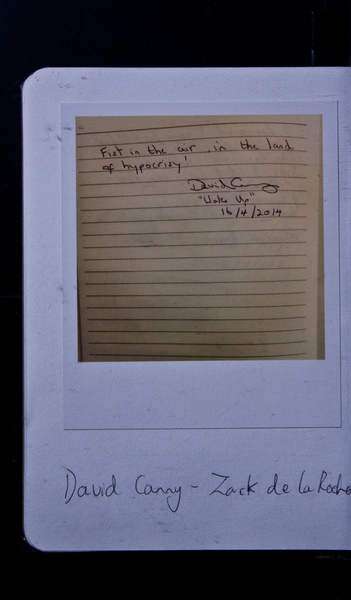 Fist in the air, in the land
of hypocrisy!
David Canny
"Wake Up"
16/4/2014
David Canny - Zack de la Roche